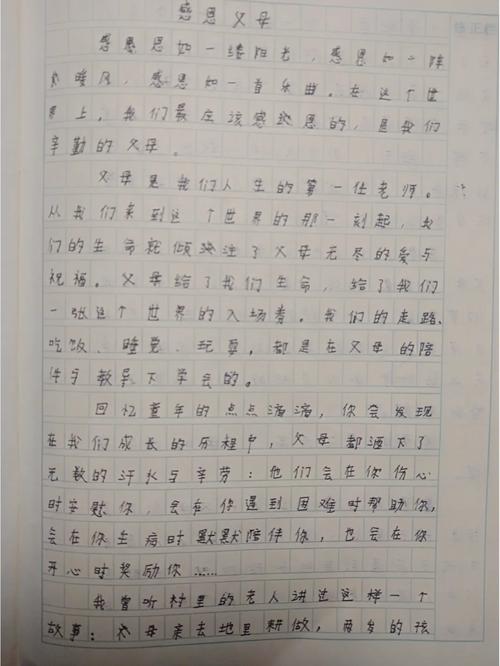 感恩父母
感恩如一缕阳光，感恩如一阵
暖风，感恩如一首乐曲。在这个世
界上，我们最应该感恩的，是我们
辛勤的父母。
父母是我们人生的第一任老师。
从我们来到这个世界的那一刻起，我
们的生命就倾注了父母无尽的爱与
祝福。父母给了我们生命，给了我们
一张这个世界的入场券。我们的走路、
吃饭、睡觉、玩耍，都是在父母的陪
伴与教导下学会的。
回忆童年的点点滴滴，你会发现
在我们成长的历程中，父母都洒下了
无数的汗水与辛劳：他们会在你伤心
时安慰你，会在你遇到困难时帮助你，
会在你生病时默默陪伴你，也会在你
开心时奖励你……
我曾听村里的老人讲过这样一个
故事：父母亲去地里耕做，两岁的孩